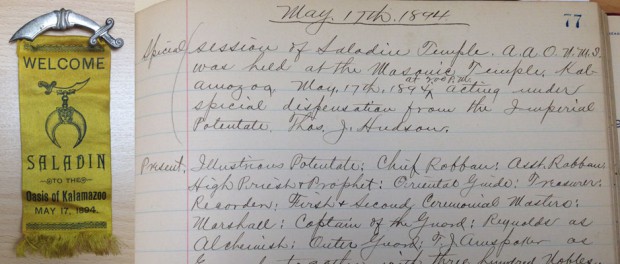 WELCOME
SALADIN
TO THE
Oasis of Kalamazoo
MAY 17, 1894.
May 17th. 1894
77
Special session of Saladin Temple. A.A.O.N.M.S.
was held at the Masonic Temple, Kal-
amazoo, May. 17th. 1894 at 2:00 P.M. acting under
special dispensation from the Imperial
Potentate. Thos. J. Hudson.
Present. Illustrious Potentate: Chief Rabban: Asst. Rabban
High Priest & Prophet: Oriental Guide: Treasurer:
Recorder: First & Second Ceremonial Masters:
Marshall: Captain of the Guard: Reynolds as
Alchemist: Outer Guard: as
together with three hundred Nobles.